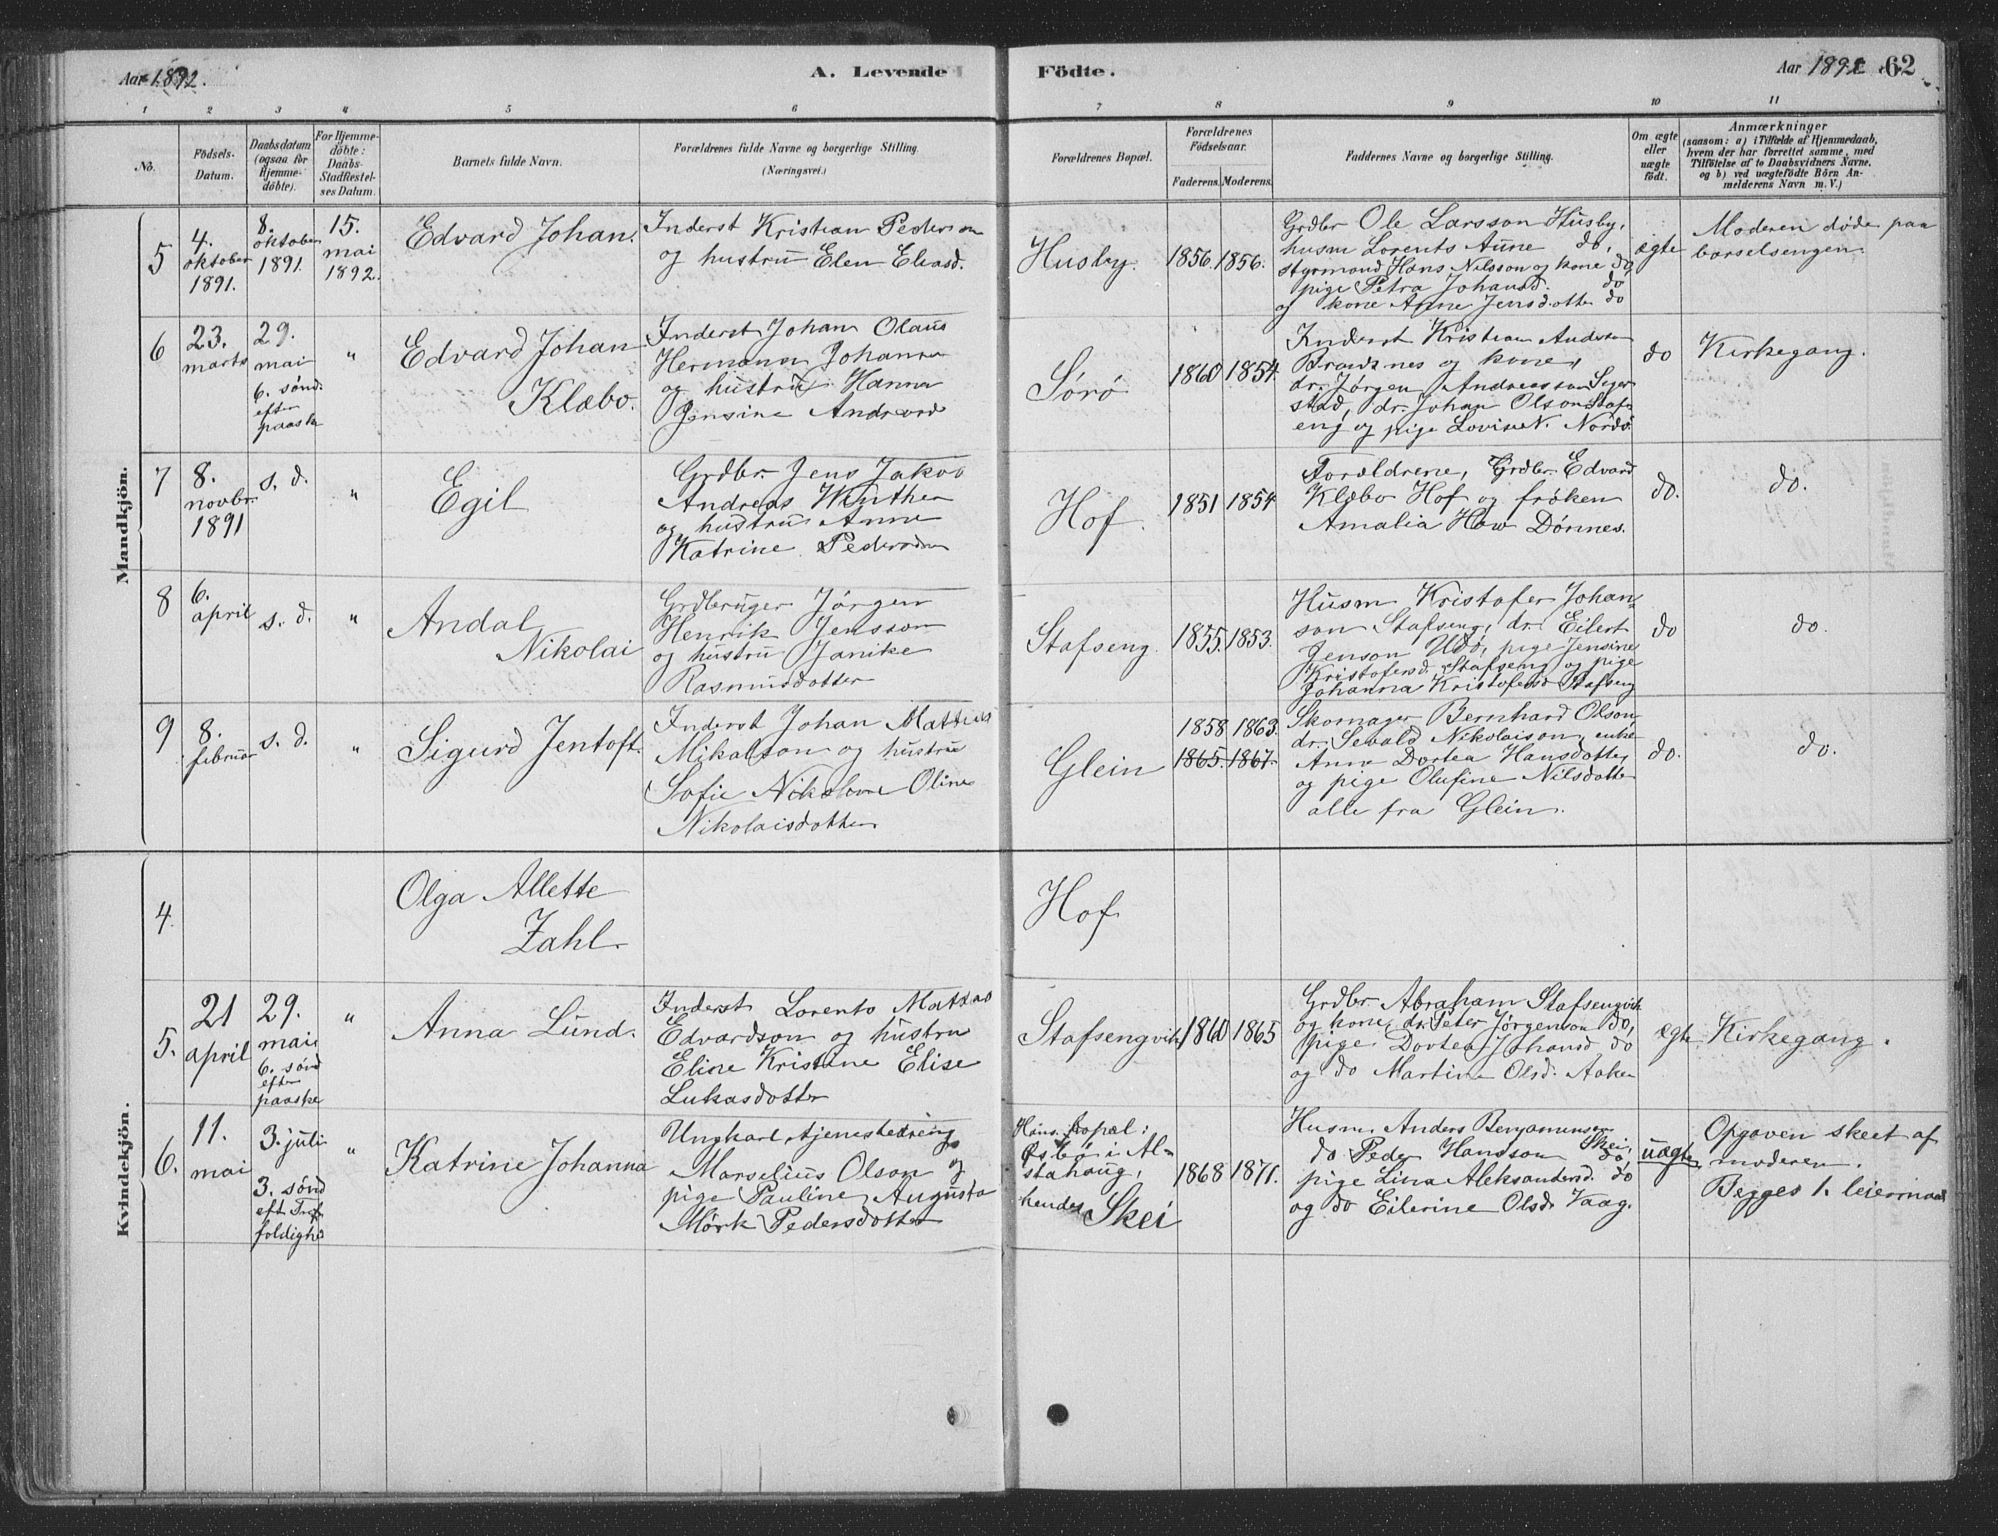 Aar 1892.
A. Levende
Födte.
Aar 1892
62
1 2 3 4 5 6 7 8 9 10 11
No.
Födsels-
Datum.
Daabsdatum
(ogsaa for
Hjemme-
döbte).
For Hjemme-
döbte:
Daabs-
Stadfæstel-
ses Datum.
Barnets fulde Navn.
Forældrenes fulde Navne og borgerlige Stilling.
(Næringsvei.)
Forældrenes Bopæl.
Forældrenes
Födselsaar.
Faderens. Moderens.
Faddernes Navne og borgerlige Stilling.
Om ægte
eller
uægte
födt.
Anmærkninger
(saasom: a) i Tilfælde af Hjemmedaab,
hvem der har forrettet samme, med
Tilföielse af to Daabsvidners Navne,
og b) ved uægtefödte Börn An-
melderens Navn m. V.)
Mandkjön.
5
4.
oktober
1891.
8.
oktober
1891.
15.
mai
1892.
Edvard Johan.
Inderst Kristian Pederson
og hustru Elen Eliasd.
Husby.
1856. 1856.
Grdbr Ole Larsson Husby,
husm Lorents Aune do,
styrmand Hans Nilsson og kone do,
pige Petra Johansd. do
og kone Anne Jensdotter do
ægte
Moderen døde paa
barselsengen.
6
23.
marts
29.
mai
6. sønd.
efter
paaske
"
Edvard Johan
Klæbo.
Inderst Johan Olaus
Hermann Johanns
og hustru Hanna
Jensine Andreasd
Sørø
1860 1854.
Inderst Kristian Anders
og kone,
dr. Jørgen Andreasson Seger
stad, dr. Johan Olson Stafs
eng og pige Lovise N. Nordø.
do
Kirkegang.
7
8.
novbr.
1891
s. d.
"
Egil
Grdbr. Jens Jakob
Andreas Winther
og hustru Anne
Katrine Pedersdn
Hof.
1851 1854
Forældrene, Grdbr. Edvard
Klæbo Hof og frøken
Amalia How Dønnes.
do.
do.
8
6.
april
s. d.
"
Andal
Nikolai
Grdbruger Jørgen
Henrik Jensson
og hustru Janike
Rasmusdotter
Stafseng.
1855. 1853.
Husm Kristofer Johan-
son Stafseng, dr. Eilert
Jenson Udø, pige Jensine
Kristofersd. Stafseng og pige
Johanna Kristofersd Stafseng
do
do.
9
8.
februar
s. d.
"
Sigurd Jentoft.
Inderst Johan Mattias
Mikalson og hustru
Sofie Nikoline Oline
Nikolaisdotter
Glein
1858 1863.
1865. 1867.
Skomager Bernhard Olson
dr. Sevald Nikolaison, enke
Anne Dortea Hansdotter
og pige Olufine Nilsdotter
alle fra Glein.
do.
do.
Kvindekjön.
4.
Olga Allette
Zahl.
Hof
5.
21
april
29.
mai
6. sønd
efter
paaske
"
Anna Lund.
Inderst Lorents Mattias
Edvardson og hustru
Eline Kristine Elise
Lukasdotter
Stafsengvik
1860 1865
Grdbr Abraham Stafsengvik
og kone, dr. Peter Jørgenson do,
pige Dortea Johansd. do
og do Martine Olsd. Aaker
ægte
Kirkegang.
6.
11.
mai
3. juli
3. sønd
eft Tre-
foldighed
"
Katrine Johanna
Ungkarl, tjenestedreng
Marselius Olson og
pige Pauline Augusta
Mørk Pedersdotter
Hans bopæl:
i Al-
stahaug,
hendes Skei
1868 1871.
Husm. Anders Benjaminsen
Skei,
do Peder Hansson do,
pige Lina Aleksandersd. do
og do Eilerine Olsd. Vaag.
uægte
Opgaven skeet af
moderen.
Begges 1. leiermaal